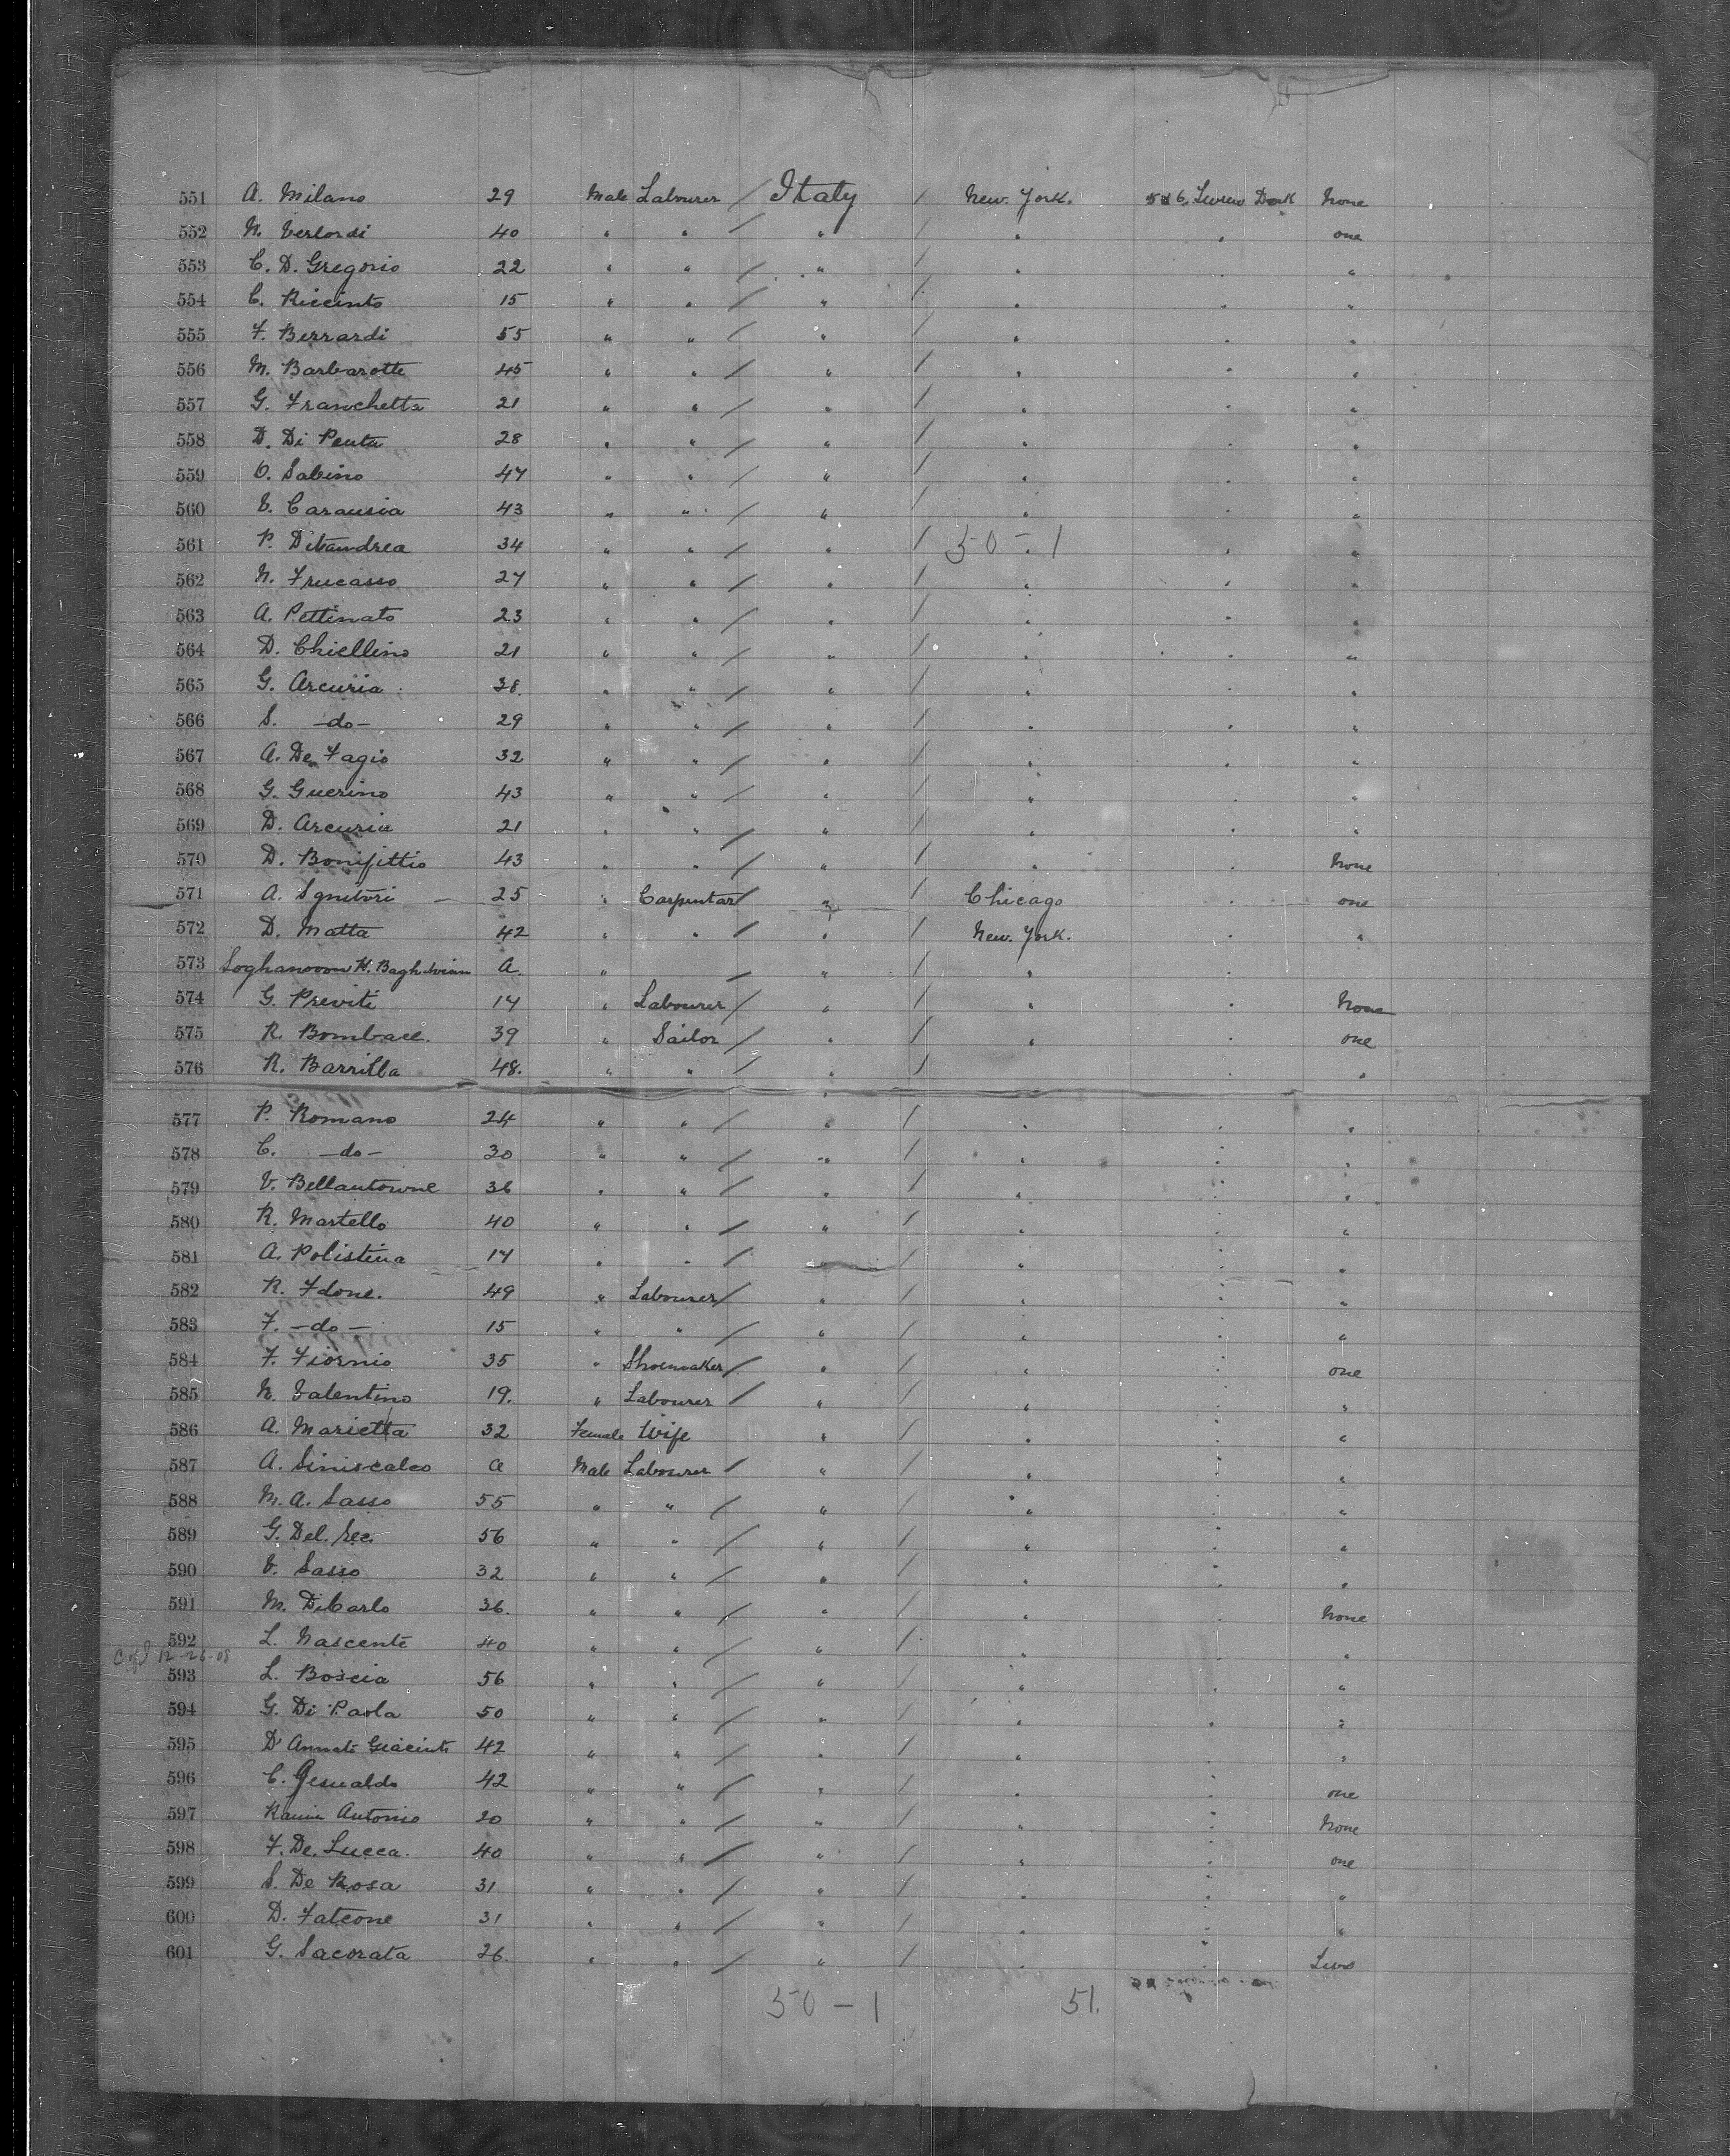 551 A. Milano 29 Male Labourer / Italy / New. York. 5 & 6. Tween Deck None
552 N. Verlordi 40 " " / " / " " one
553 C. D. Gregorio 22 " " / " / " " "
554 C. Riccinto 15 " " / " / " " "
555 F. Berrardi 55 " " / " / " " "
556 M. Barbarotte 45 " " / " / " " "
557 G. Franchetta 21 " " / " / " " "
558 D. Di Penta 28 " " / " / " " "
559 O. Sabino 47 " " / " / " " "
560 V. Carausia 43 " " / " / " " "
561 P. Ditandrea 34 " " / " / 50-1 " " "
562 N. Frucasso 27 " " / " / " " "
563 A. Pettinato 23 " " / " / " " "
564 D. Chiellino 21 " " / " / " " "
565 G. Arcuria 38. " " / " / " " "
566 S. -do- 29 " " / " / " " "
567 A. De Fagio 32 " " / " / " " "
568 G. Guerino 43 " " / " / " " "
569 D. Arcuria 21 " " / " / " " "
570 D. Bonifittio 43 " " / " / " " None
571 A. Sgnitori 25 " Carpentar / " / Chicago " one
572 D. Matta 42 " " / " / New. York. " "
573 H. A. " / " / " "
574 G. Previti 17 " Labourer / " / " " None
575 R. Bombace. 39 " Sailor / " / " " one
576 R. Barrilla 48. " " / " / " "
577 P. Romano 24 " " / " / " " "
578 C. -do- 30 " " / " / " " "
579 V. Bellantowne 36 " " / " / " " "
580 R. Martello 40 " " / " / " " "
581 A. Polistina 17 " " / " / " " "
582 R. Fdone. 49 " Labourer / " / " " "
583 F. -do- 15 " " / " / " " "
584 F. Fiornio 35 " Shoemaker / " / " " one
585 N. Valentino 19. " Labourer / " / " " "
586 A. Marietta 32 Female Wife " / " " "
587 A. Siniscalco A Male Labourer / " / " " "
588 M. A. Sasso 55 " " / " / " " "
589 G. Del. Sec. 56 " " / " / " " "
590 V. Sasso 32 " " / " / " " "
591 M. DiCarlo 36. " " / " / " " None
592 L. Nascente 40 " " / " / " " "
12-26-08
593 L. Boscia 56 " " / " / " " "
594 G. Di Paola 50 " " / " / " " "
595 D'Annate Giacinti 42 " " / " / " " "
596 C. Gesualdo 42 " " / " / " " one
597 Antonio 20 " " / " / " " None
598 F. De. Lucca. 40 " " / " / " " one
599 S. De Rosa 31 " " / " / " " "
600 D. Falcone 31 " " / " / " " "
601 G. Sacorata 26. " " / " / " " Two
50-1 51.